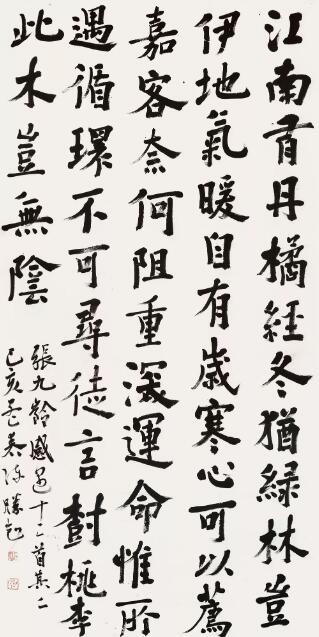 江南有丹橘經冬猶綠林豈
伊地氣暖自有歲寒心可以薦
嘉客奈何阻重深運命惟所
遇循環不可尋徒言樹桃李
此木豈無陰
張九齡感遇十二首其二
己亥孟春